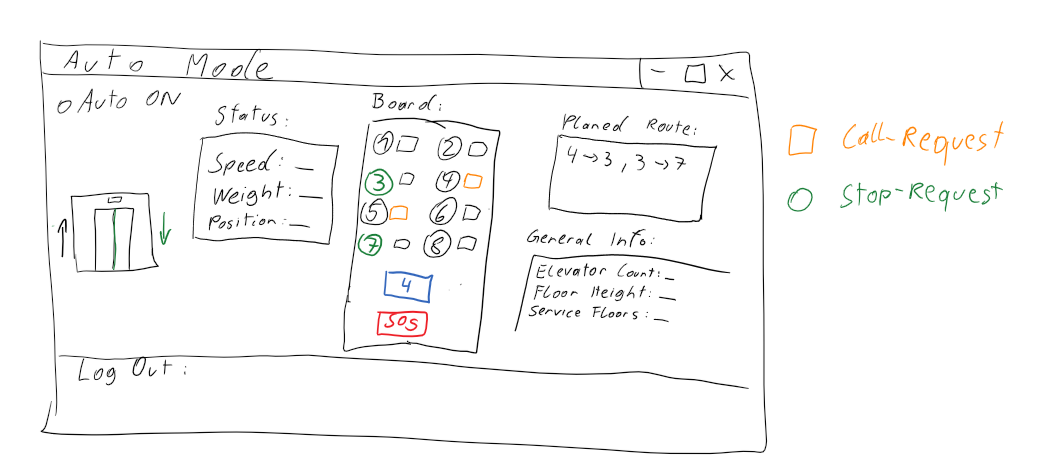 Auto Mode
- □ X
Auto ON
Status:
Speed: _
Weight: _
Position: _
Board:
1 2
3 4
5 6
7 8
4
SOS
Planed Route:
4→3, 3→7
General Info:
Elevator Count: _
Floor Height: _
Service Floors: _
Log Out:
Call-Request
Stop-Request